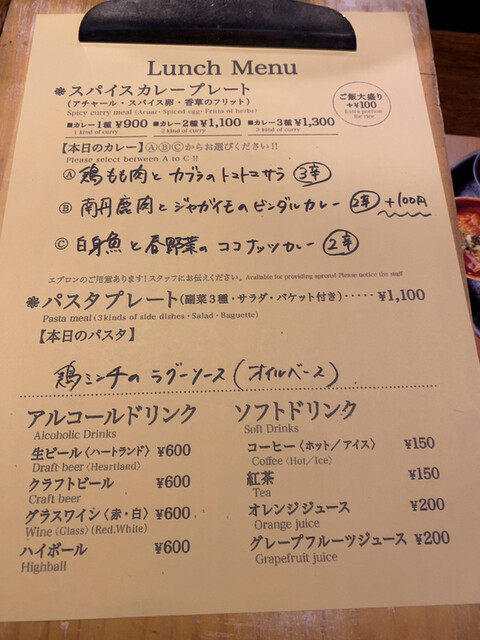 Lunch Menu
❋スパイスカレープレート
(アチャール・スパイス卵・香草のフリット)
Spicy curry meal (Acaar・Spiced egg・Fritto of herbs)
ご飯大盛り
+¥100
Extra portion
for rice
■カレー1種 ¥900 ■カレー2種 ¥1,100 ■カレー3種 ¥1,300
1 kind of curry 2 kind of curry 3 kind of curry
【本日のカレー】ⒶⒷⒸからお選びください!!
Please select between A to C !!
Ⓐ 鶏もも肉とカブラのトマトマサラ 3辛
Ⓑ 南丹鹿肉とジャガイモのビンダルカレー 2辛 +100円
Ⓒ 白身魚と春野菜のココナッツカレー 2辛
エプロンのご用意あります!スタッフにお伝えください。Available for providing apron! Please notice the staff
❋パスタプレート(副菜3種・サラダ・バケット付き)・・・・・ ¥1,100
Pasta meal (3kinds of side dishes・Salad・Baguette)
【本日のパスタ】
鶏ミンチのラグーソース(オイルベース)
アルコールドリンク
Alcoholic Drinks
生ビール〈ハートランド〉 ¥600
Draft beer〈Heartland〉
クラフトビール ¥600
Craft beer
グラスワイン〈赤・白〉 ¥600
Wine〈Glass〉(Red,White)
ハイボール ¥600
Highball
ソフトドリンク
Soft Drinks
コーヒー〈ホット/アイス〉 ¥150
Coffee〈Hot/Ice〉
紅茶 ¥150
Tea
オレンジジュース ¥200
Orange juice
グレープフルーツジュース ¥200
Grapefruit juice